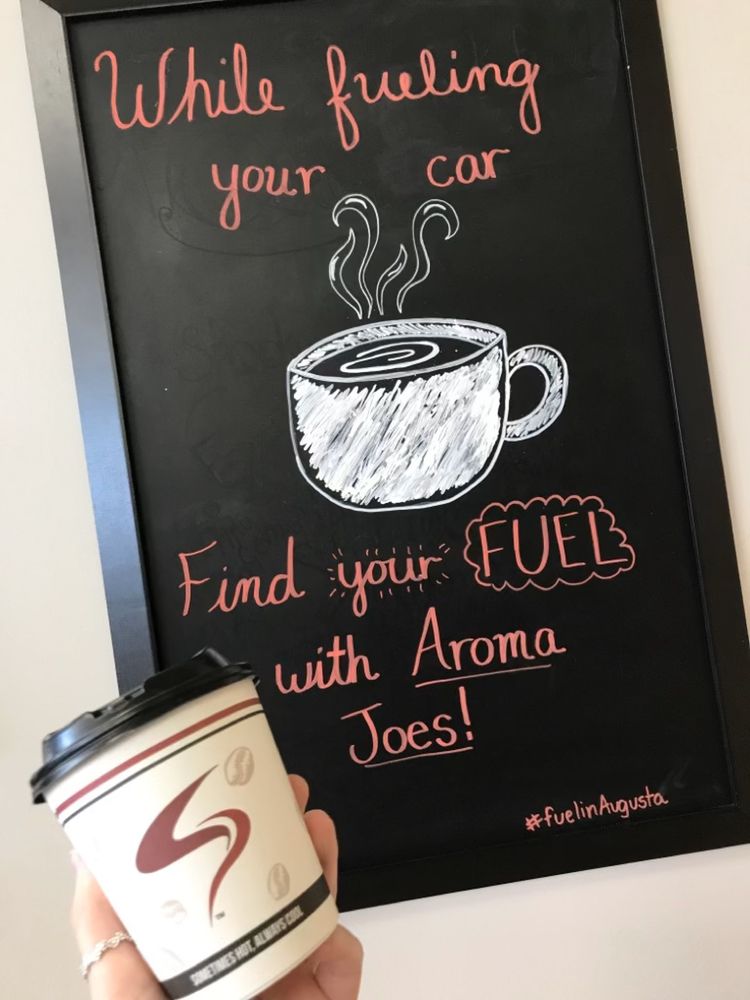 While fueling
your car
Find your FUEL
with Aroma
Joes!
#fuelinAugusta
TM
SOMETIMES HOT, ALWAYS COOL